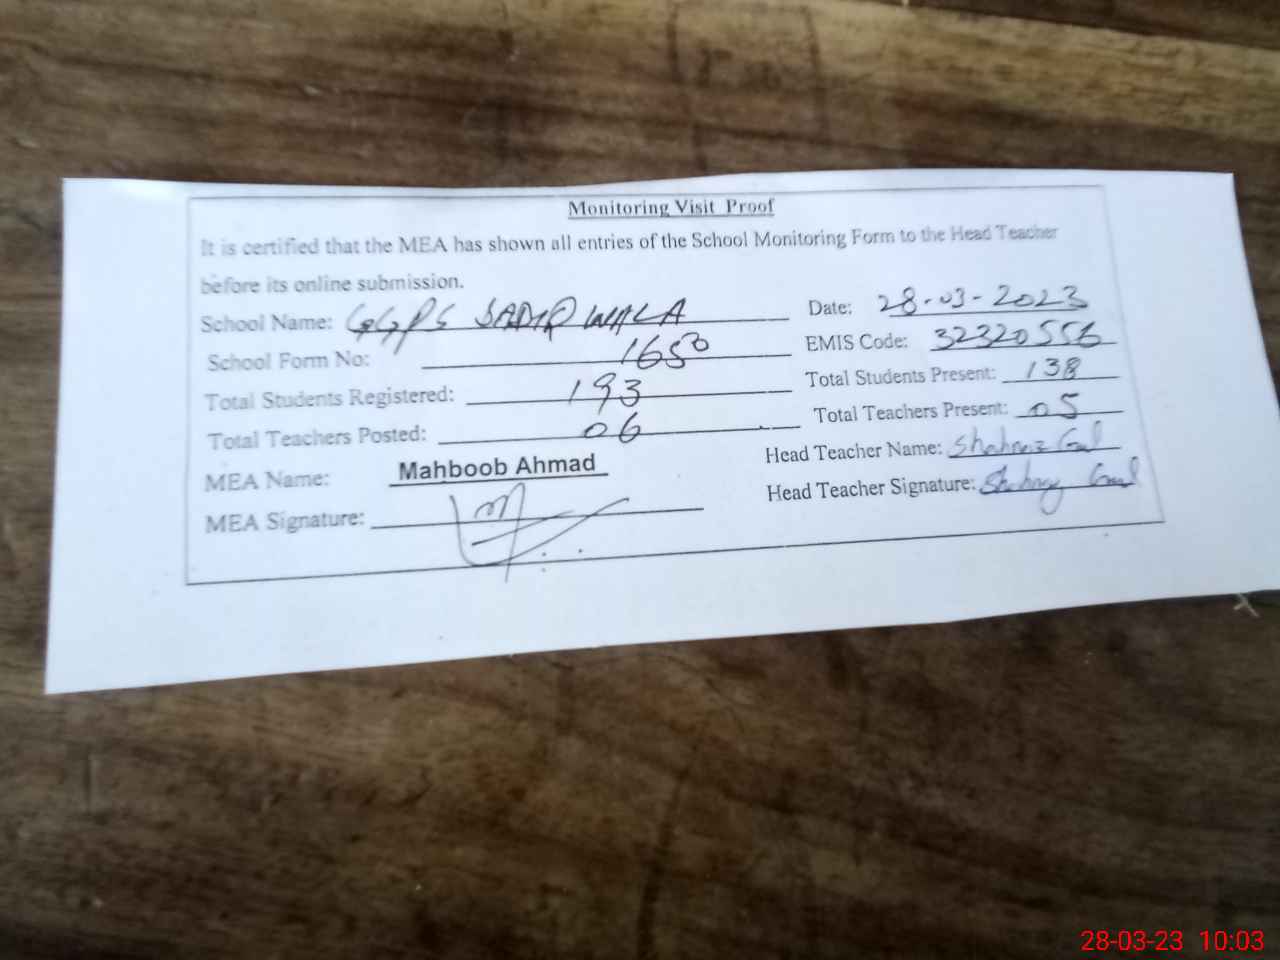 Monitoring Visit Proof
It is certified that the MEA has shown all entries of the School Monitoring Form to the Head Teacher
before its online submission.
School Name: GGPS SADIQ WALA Date: 28-03-2023
School Form No: 1650 EMIS Code: 32320556
Total Students Registered: 193 Total Students Present: 138
Total Teachers Posted: 06 Total Teachers Present: 05
MEA Name: Mahboob Ahmad Head Teacher Name: Shahnaz Gul
MEA Signature: Head Teacher Signature: Shahnaz Gul
28-03-23 10:03